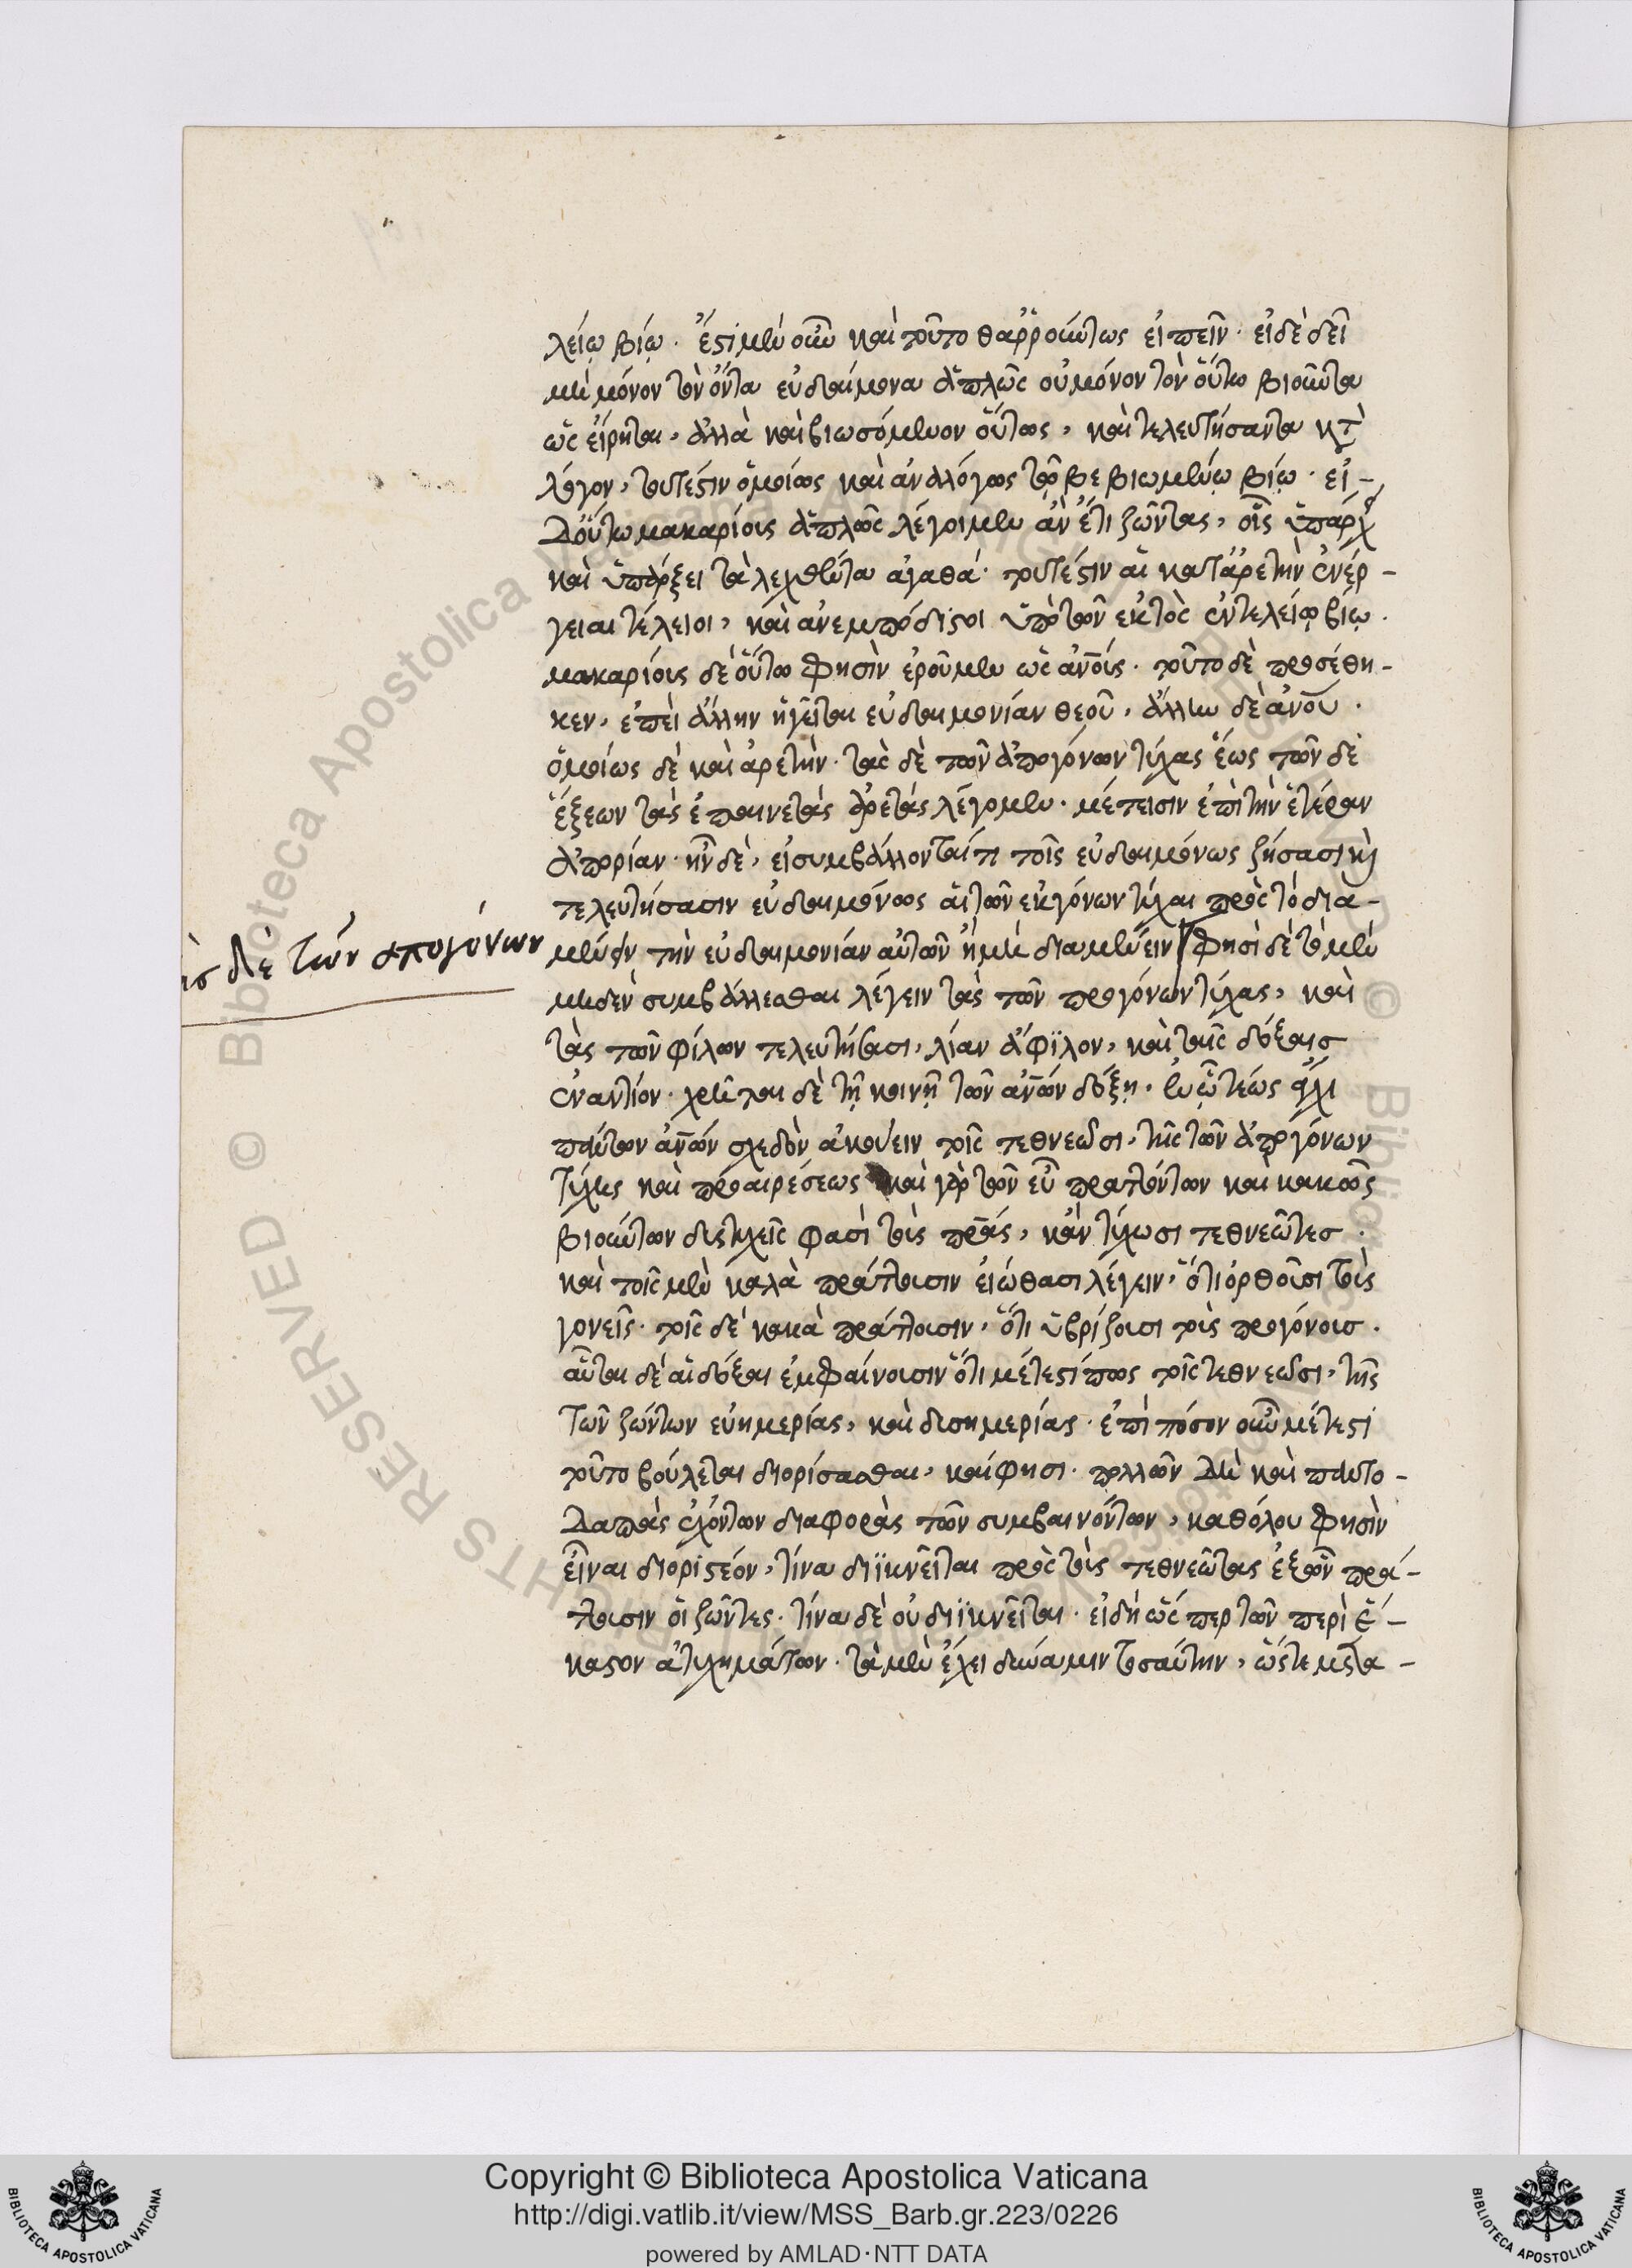 λείῳ βίῳ. ἔστι μὲν οὖν καὶ τοῦτο θαῤῥούντως εἰπεῖν. εἰ δὲ δεῖ
μὴ μόνον τὸν ὄντα εὐδαίμονα ἁπλῶς οὐ μόνον τὸν οὕτω βιοῦντα
ὡς εἴρηται, ἀλλὰ καὶ βιωσόμενον οὕτως, καὶ τελευτήσαντα κτ̀
λόγον, τουτέστιν ὁμοίως καὶ ἀναλόγως τῷ βεβιωμένῳ βίῳ. εἰ-
δ' οὕτω μακαρίους ἁπλῶς λέγοιμεν ἂν ἔτι ζῶντας, οἷς ὑπάρχει
καὶ ὑπάρξει τὰ λεχθέντα ἀγαθά. τουτέστιν αἱ κατ' ἀρετὴν ἐνέρ-
γειαι τέλειοι, καὶ ἀνεμπόδιστοι ὑπὸ τῶν ἐκτὸς ἐν τελείῳ βίῳ.
μακαρίους δὲ οὕτω φησὶν ἐροῦμεν ὡς ἀνοῖς. τοῦτο δὲ προσέθη-
κεν, ἐπεὶ ἄλλην ἡγεῖται εὐδαιμονίαν θεοῦ, ἄλλην δὲ ἀνοῦ.
ὁμοίως δὲ καὶ ἀρετήν. τὰς δὲ τῶν ἀπογόνων τύχας ἕως τῶν δὲ
ἕξεων τὰς ἐπαινετὰς ἀρετὰς λέγομεν. μέτεισιν ἐπὶ τὴν ἑτέραν
ἀπορίαν. ἦν δὲ, εἰ συμβάλλονταί τι τοῖς εὐδαιμόνως ζήσασι καὶ
τελευτήσασιν εὐδαιμόνως αἱ τῶν ἐκγόνων τύχαι πρὸς τὸ δια-
μένειν τὴν εὐδαιμονίαν αὐτῶν ἢ μὴ διαμένειν φησὶ δὲ τὸ μὲν
μηδὲν συμβάλλεσθαι λέγειν τὰς τῶν προγόνων τύχας, καὶ
τὰς τῶν φίλων τελευτήσασι, λίαν ἄφιλον, καὶ ταῖς δόξαις
ἐναντίον. χρῆται δὲ τῇ κοινῇ τῶν ἀνῶν δόξῃ.
πάντων ἀνῶν σχεδὸν ἀκούειν τοῖς τεθνεῶσι, τῆς τῶν ἀπογόνων
τύχης καὶ προαιρέσεως καὶ γὰρ τῶν εὖ πραττόντων καὶ κακῶς
βιούντων δυστυχεῖς φασὶ τοὺς πρας, κἂν τύχωσι τεθνεῶτες.
καὶ τοῖς μὲν καλὰ πράττουσιν εἰώθασι λέγειν, ὅτι ὀρθοῦσι τοὺς
γονεῖς. τοῖς δὲ κακὰ πράττουσιν, ὅτι ὑβρίζουσι τοὺς προγόνους.
αὗται δὲ αἱ δόξαι ἐμφαίνουσιν ὅτι μέτεστί πως τοῖς τεθνεῶσι, τῆς
τῶν ζώντων εὐημερίας, καὶ δυσημερίας. ἐπὶ πόσον οὖν μέτεστι
τοῦτο βούλεται διορίσασθαι, καί φησι. πολλῶν δὴ καὶ παντο-
δαπὰς ἐχόντων διαφορὰς τῶν συμβαινόντων, καθόλου φησὶν
εἶναι διοριστέον, τίνα διϊκνεῖται πρὸς τοὺς τεθνεῶτας ἐξ ὧν πρά-
ττουσιν οἱ ζῶντες. τίνα δὲ οὐ διϊκνεῖται. εἰ δὴ ὥσπερ τῶν περὶ ἕ-
καστον ἀτυχημάτων. τὰ μὲν ἔχει δύναμιν τοσαύτην, ὥστε μετα-
ὰς δὲ τῶν ἀπογόνων
Copyright © Biblioteca Apostolica Vaticana
http://digi.vatlib.it/view/MSS_Barb.gr.223/0226
powered by AMLAD·NTT DATA